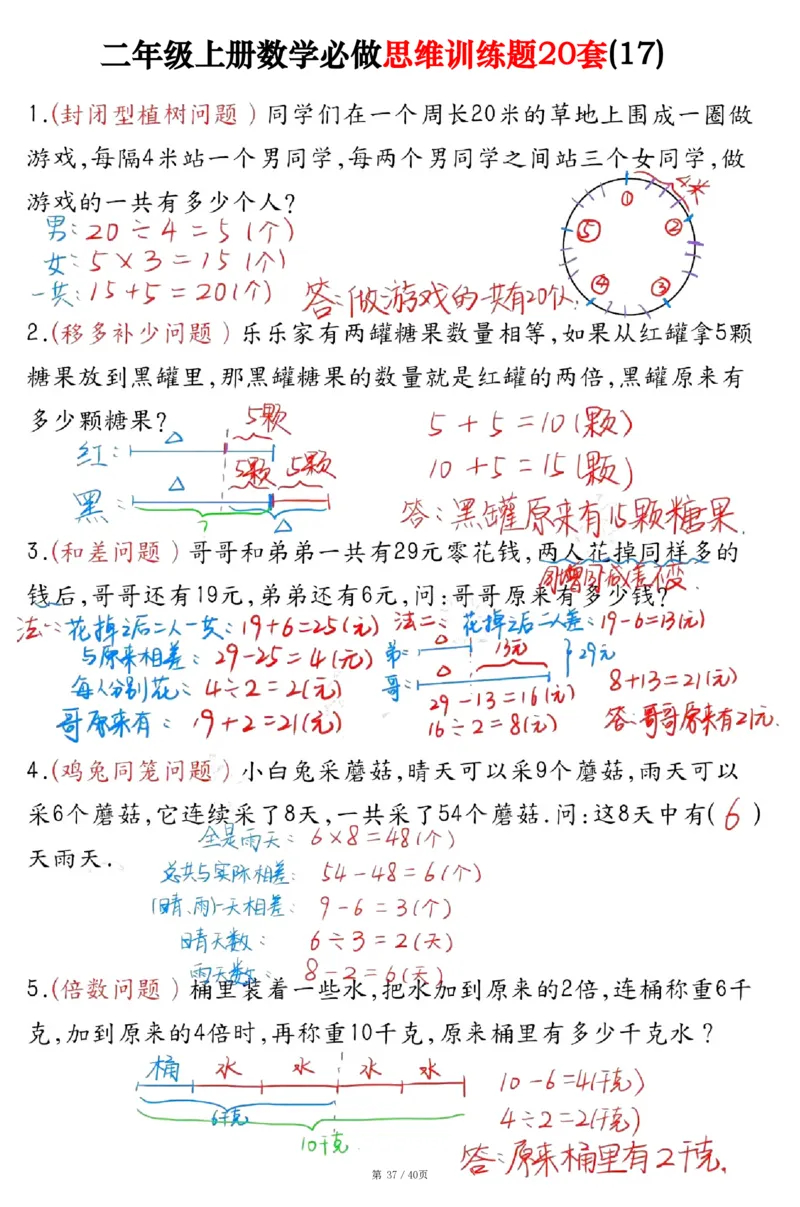 二年级上册数学必做思维训练题20套(17)
1.(封闭型植树问题)同学们在一个周长20米的草地上围成一圈做
游戏,每隔4米站一个男同学,每两个男同学之间站三个女同学,做
游戏的一共有多少个人?
4米
① ② ③ ④ ⑤
男:20÷4=5(个)
女:5×3=15(个)
一共:15+5=20(个)
答:做游戏的一共有20个人.
2.(移多补少问题)乐乐家有两罐糖果数量相等,如果从红罐拿5颗
糖果放到黑罐里,那黑罐糖果的数量就是红罐的两倍,黑罐原来有
多少颗糖果?
红: △ 5颗
黑: △ 5颗 5颗
? △
5+5=10(颗)
10+5=15(颗)
答:黑罐原来有15颗糖果.
3.(和差问题)哥哥和弟弟一共有29元零花钱,两人花掉同样多的
同增同减差不变
钱后,哥哥还有19元,弟弟还有6元,问:哥哥原来有多少钱?
法一:花掉之后二人一共:19+6=25(元)
与原来相差:29-25=4(元)
每人分别花:4÷2=2(元)
哥原来有:19+2=21(元)
法二:花掉之后二人差:19-6=13(元)
弟: △ 13元
哥: △
29元
29-13=16(元)
16÷2=8(元)
8+13=21(元)
答:哥哥原来有21元.
4.(鸡兔同笼问题)小白兔采蘑菇,晴天可以采9个蘑菇,雨天可以
采6个蘑菇,它连续采了8天,一共采了54个蘑菇.问:这8天中有(6)
天雨天.
全是雨天:6×8=48(个)
总共与实际相差:54-48=6(个)
(晴、雨)一天相差:9-6=3(个)
晴天数:6÷3=2(天)
雨天数:8-2=6(天)
5.(倍数问题)桶里装着一些水,把水加到原来的2倍,连桶称重6千
克,加到原来的4倍时,再称重10千克,原来桶里有多少千克水?
桶 水 水 水 水
6千克
10千克
10-6=4(千克)
4÷2=2(千克)
答:原来桶里有2千克.
第 37 / 40页